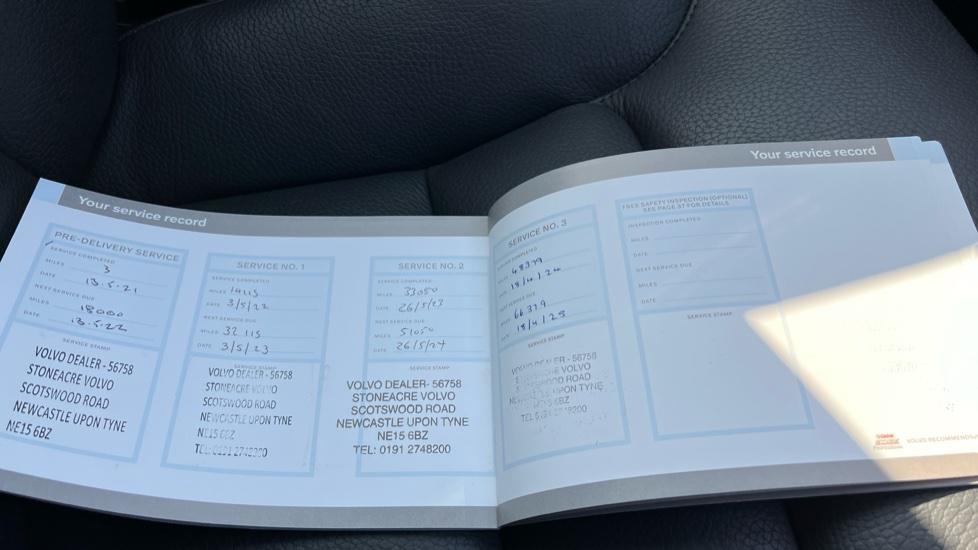 Your service record
PRE-DELIVERY SERVICE
SERVICE COMPLETED
MILES 3
DATE 13.5.21
NEXT SERVICE DUE
MILES 18000
DATE 13.5.22
SERVICE STAMP
VOLVO DEALER - 56758
STONEACRE VOLVO
SCOTSWOOD ROAD
NEWCASTLE UPON TYNE
NE15 6BZ
SERVICE NO. 1
SERVICE COMPLETED
MILES 14115
DATE 3/5/22
NEXT SERVICE DUE
MILES 32 115
DATE 3/5/23
SERVICE STAMP
VOLVO DEALER - 56758
STONEACRE VOLVO
SCOTSWOOD ROAD
NEWCASTLE UPON TYNE
NE15 6BZ
TEL: 0191 2748200
SERVICE NO. 2
SERVICE COMPLETED
MILES 33050
DATE 26/5/23
NEXT SERVICE DUE
MILES 51050
DATE 26/5/24
SERVICE STAMP
VOLVO DEALER- 56758
STONEACRE VOLVO
SCOTSWOOD ROAD
NEWCASTLE UPON TYNE
NE15 6BZ
TEL: 0191 2748200
Your service record
SERVICE NO. 3
SERVICE COMPLETED
48379
18/4/24
NEXT SERVICE DUE
66379
18/4/25
SERVICE STAMP
VOLVO DEALER - 56758
VOLVO
ROAD
UPON TYNE
6BZ
FREE SAFETY INSPECTION (OPTIONAL)
SEE PAGE 37 FOR DETAILS
INSPECTION COMPLETED
MILES
DATE
NEXT SERVICE DUE
MILES
DATE
SERVICE STAMP
VOLVO RECOMMENDS